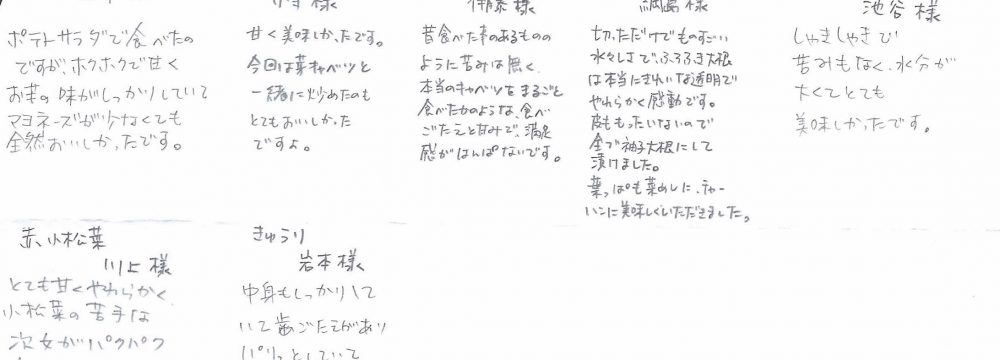 様
ポテトサラダで食べたの
ですが、ホクホクで甘く
お芋の味がしっかりしていて
マヨネーズが少なくても
全然おいしかったです。
様
甘く美味しかったです。
今回は芽キャベツと
一緒に炒めたのも
とてもおいしかった
ですよ。
伊藤様
昔食べた事のあるものの
ように苦みは無く、
本当のキャベツをまるごと
食べたかのような、食べ
ごたえと甘みで、満足
感がはんぱないです。
綱島様
切っただけでものすごい
水々しさで、ふろふき大根
は本当にきれいな透明で
やわらかく感動です。
皮ももったいないので
全て柚子大根にして
漬けました。
葉っぱも菜めしに、チャー
ハンに美味しくいただきました。
池谷様
しゃきしゃきで
苦みもなく、水分が
太くてとても
美味しかったです。
赤い小松菜
川上様
とても甘くやわらかく
小松菜の苦手な
次女がパクパク
きゅうり
岩本様
中身もしっかりして
いて歯ごたえがあり
パリっとしていて